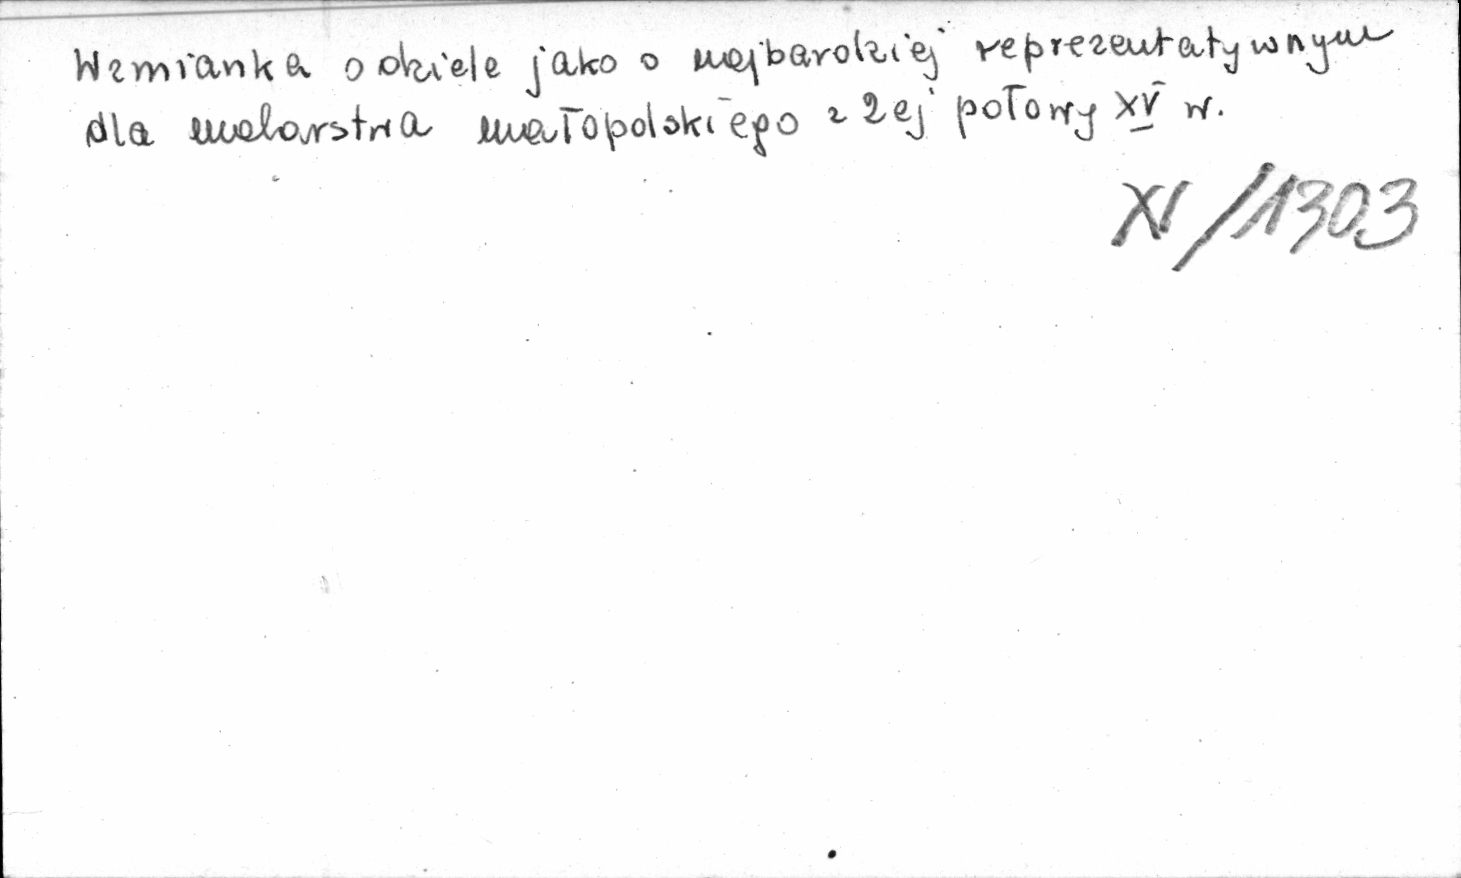 Wzmianka o dziele jako o najbardziej reprezentatywnym
dla malarstwa małopolskiego z 2ej połowy XV w.
XI/1303